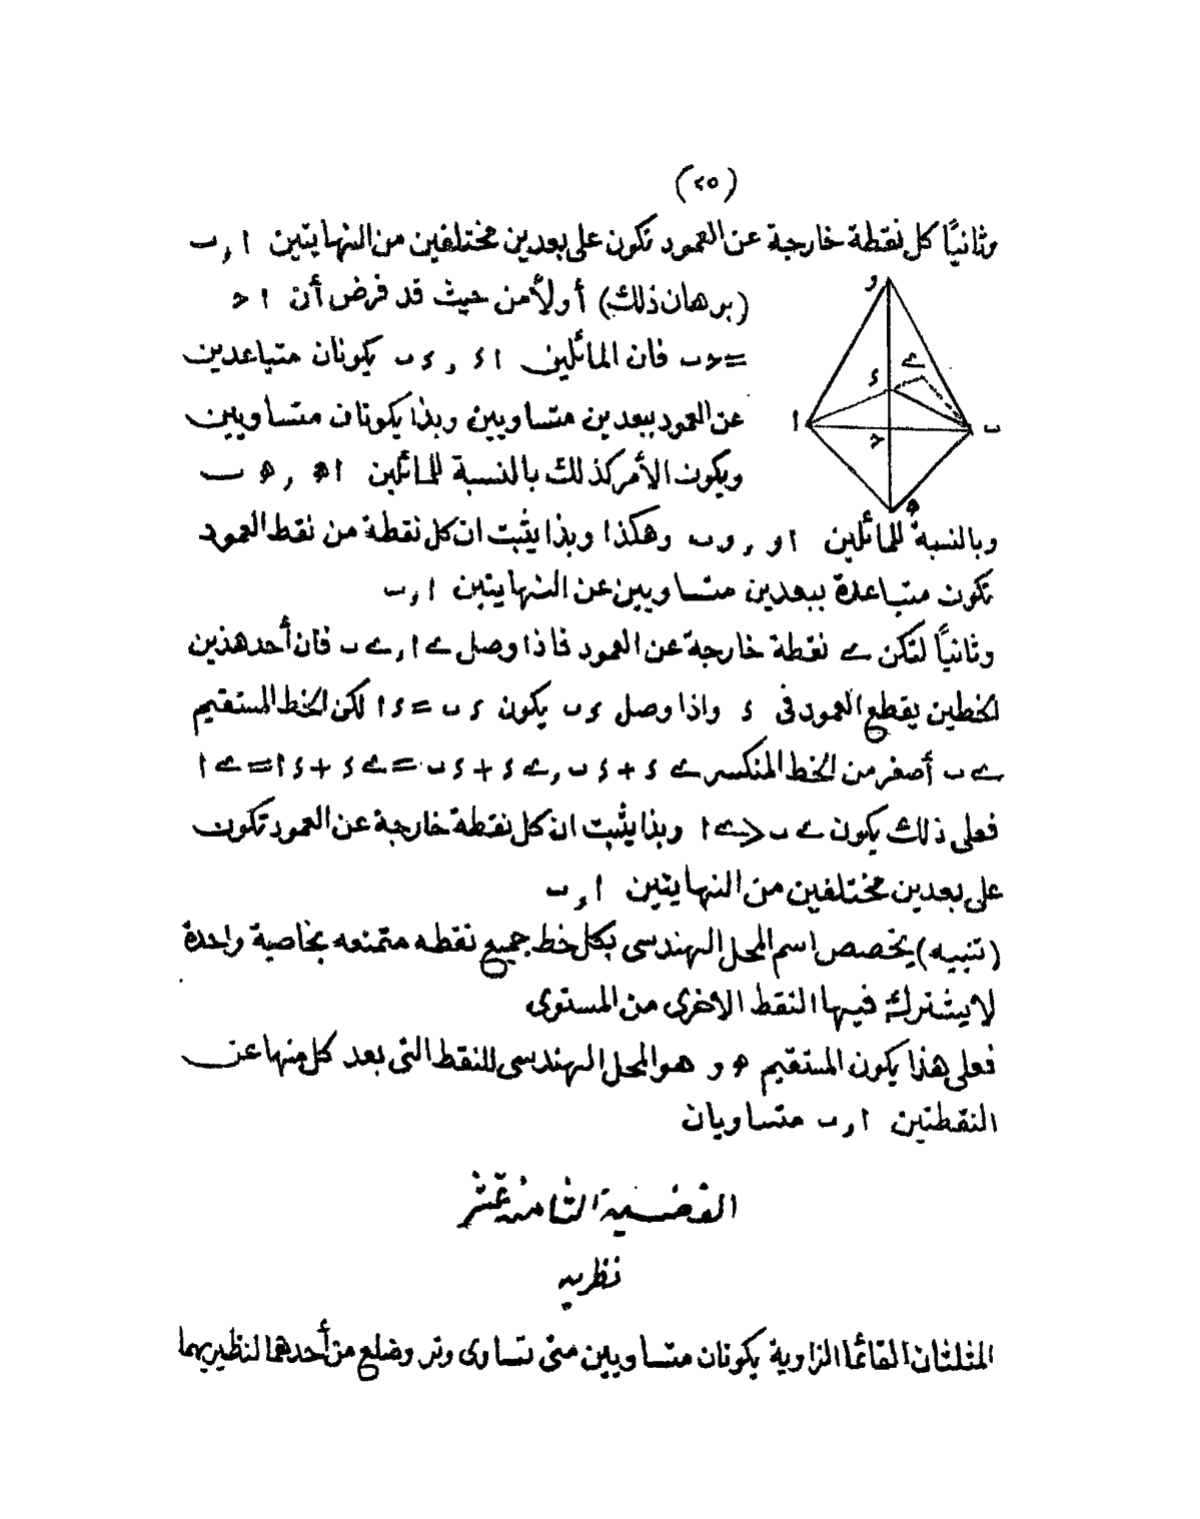 (٢٥)
وثانيًا كل نقطة خارجة عن العمود تكون على بعدين مختلفين من النهايتين ا , ب
(برهان ذلك) أولاً من حيث قد فرض أن ا ح
= ح ب فان المائلين ا د , د ب يكونان متباعدين
عن العمود ببعدين متساويين وبذا يكونان متساويين
ويكون الأمر كذلك بالنسبة للمائلين ا ه , ه ب
وبالنسبة للمائلين ا و , و ب وهكذا وبذا يثبت ان كل نقطة من نقط العمود
تكون متباعدة ببعدين متساويين عن النهايتين ا , ب
وثانيًا لتكن ے نقطة خارجة عن العمود فاذا وصل ے ا , ے ب فان أحد هذين
الخطين يقطع العمود فى د واذا وصل د ب يكون د ب = د ا لكن الخط المستقيم
ے ب أصغر من الخط المنكسر ے د + د ب , ے د + د ب = ے د + د ا = ے ا
فعلى ذلك يكون ے ب < ے ا وبذا يثبت ان كل نقطة خارجة عن العمود تكون
على بعدين مختلفين من النهايتين ا , ب
(تنبيه) يخصص اسم المحل الهندسى بكل خط جميع نقطه متمتعه بخاصية واحدة
لا يشترك فيها النقط الاخرى من المستوى
فعلى هذا يكون المستقيم ه و هو المحل الهندسى للنقط التى بعد كل منها عن
النقطتين ا , ب متساويان
القضية الثامنة عشر
نظرية
المثلثان القائما الزاوية يكونان متساويين متى تساوى وتر وضلع من أحدهما لنظيريهما
و
ے
د
ا
ب
ح
ه